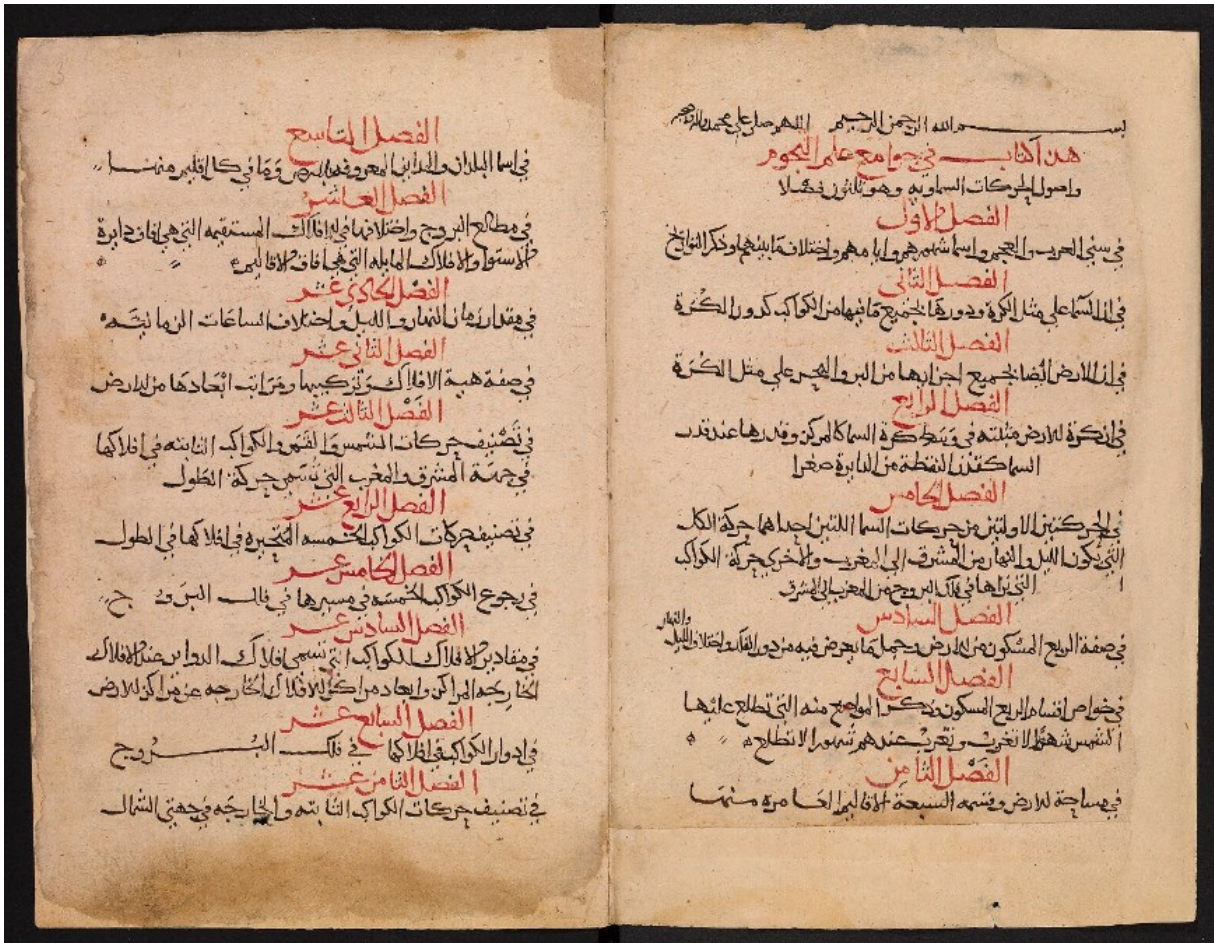 بسم الله الرحمن الرحيم اللهم صل على محمد وآله وصحبه
هذا كتاب في جوامع علم النجوم
واصول الحركات السماويه وهو ثلثون فصلا
الفصل الاول
في سني العرب والعجم واسما شهورهم وايامهم واختلاف ما بينهم وذكر التواريخ
الفصل الثاني
في ان السما على مثل الكرة ودورها بجميع ما فيها من الكواكب كدور الكرة
الفصل الثالث
في ان الارض ايضا بجميع اجزايها من البر والبحر على مثل الكرة
الفصل الرابع
في ان كرة الارض مثبته في وسط كرة السما كالمركز وقدرها عند قدر
السما كقدر النقطة من الدايرة صغرا
الفصل الخامس
في الحركتين الاولتين من حركات السما اللتين احداهما حركة الكل
التي يكون الليل والنهار من المشرق الى المغرب والاخرى حركة الكواكب
التي نراها في فلك البروج من المغرب الى المشرق
الفصل السادس
والنهار
في صفة الربع المسكون من الارض وجمل ما يعرض فيه من دور الفلك واختلاف الليل
الفصل السابع
في خواص اقسام الربع المسكون وذكر المواضع منه التي تطلع عليها
الشمس شهورا لا تغرب وتغرب عندهم شهورا لا تطلع
الفصل الثامن
في مساحة الارض وقسمه السبعة الاقاليم العامره منها
الفصل التاسع
في اسما البلدان والمداين المعروفه في الارض وما في كل اقليم منها
الفصل العاشر
في مطالع البروج واختلافها في الافلاك المستقيمه التي هي افاق دايرة
الاستوا والافلاك المايله التي هي افاق الاقاليم
الفصل الحادي عشر
في مقدار زمان النهار والليل واختلاف الساعات الزمانيه
الفصل الثاني عشر
في صفة هية الافلاك وتركيبها ومراتب ابعادها من الارض
الفصل الثالث عشر
في تصنيف حركات الشمس والقمر والكواكب الثابته في افلاكها
في جهة المشرق والمغرب التي تسمى حركة الطول
الفصل الرابع عشر
في تصنيف حركات الكواكب الخمسه المتحيره في افلاكها في الطول
الفصل الخامس عشر
في رجوع الكواكب الخمسه في مسيرها في فلك البروج
الفصل السادس عشر
في مقادير الافلاك للكواكب التي تسمى افلاك التداوير عند الافلاك
الخارجه المراكز وابعاد مراكز الافلاك الخارجه عن مراكز الارض
الفصل السابع عشر
في ادوار الكواكب في افلاكها في فلك البروج
الفصل الثامن عشر
في تصنيف حركات الكواكب الثابته والخارجه في جهتي الشمال